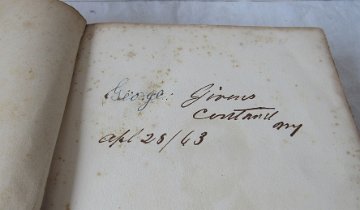 George Givens
Cortland
NY
Apl 28/63